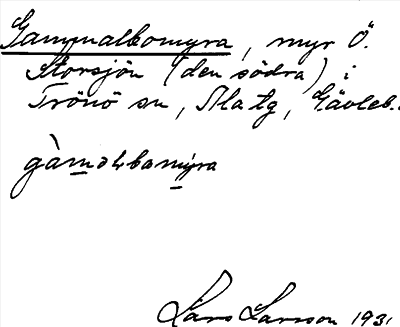 Gammalbomyra, myr Ö.
Storsjön (den södra) i
Trönö sn, Ala tg, Gävleb.
gàməlbamyra
Lars Larsson 1931